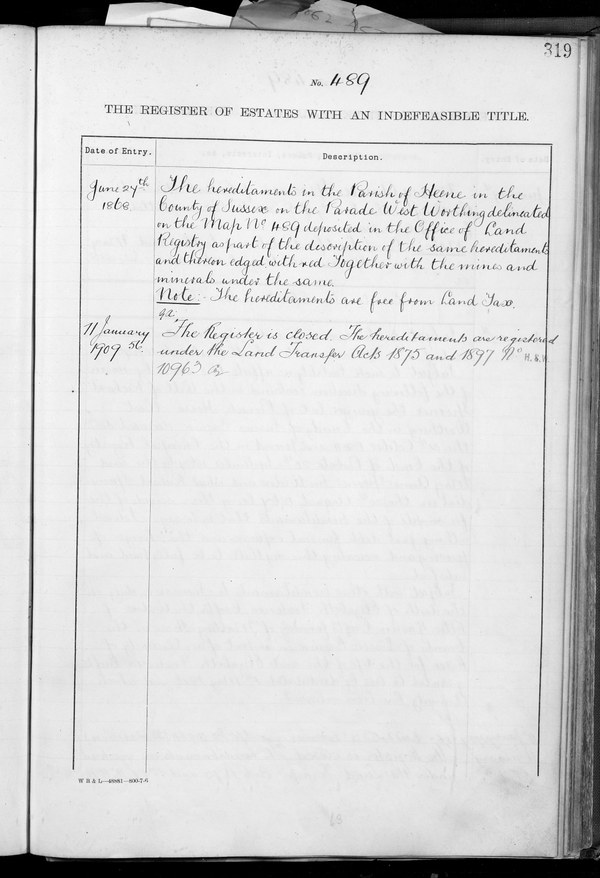 319
No. 489
THE REGISTER OF ESTATES WITH AN INDEFEASIBLE TITLE.
Date of Entry.
Description.
June 27th
1868
The hereditaments in the Parish of Heene in the
County of Sussex on the Parade West Worthing delineated
on the Map No 489 deposited in the Office of Land
Registry as part of the description of the same hereditaments
and thereon edged with red Together with the mines and
minerals under the same
Note:- The hereditaments are free from Land Tax.
11 January
1909
The Register is closed. The hereditaments are registered
under the Land Transfer Acts 1875 and 1897 No
10963
W B & L—49881—800-7-6